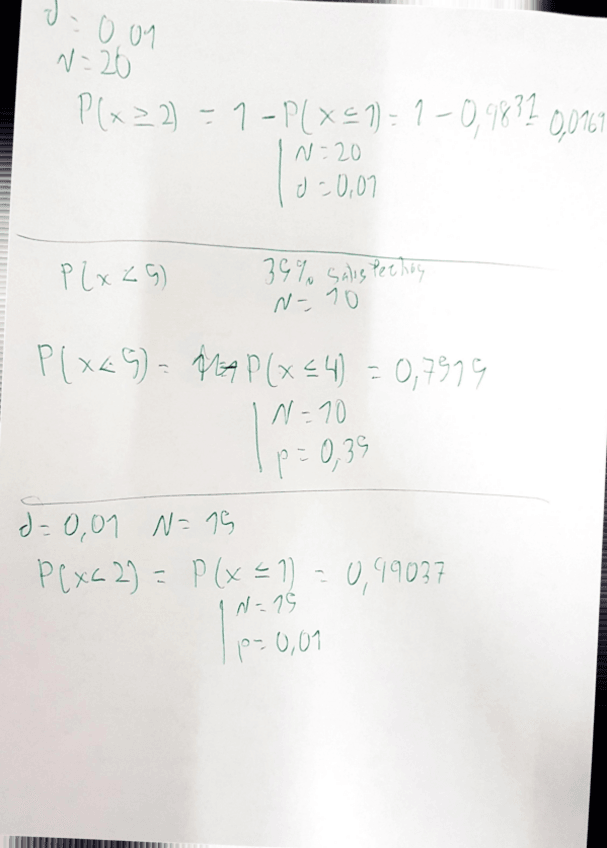 d = 0,01
N = 20
P(x ≥ 2) = 1 - P(x ≤ 1) = 1 - 0,9831 0,0169
N = 20
d = 0,01
P(x < 5) 35% satisfechos
N = 10
P(x < 5) = P(x ≤ 4) = 0,7515
N = 10
p = 0,35
d = 0,01 N = 15
P(x < 2) = P(x ≤ 1) = 0,99037
N = 15
p = 0,01